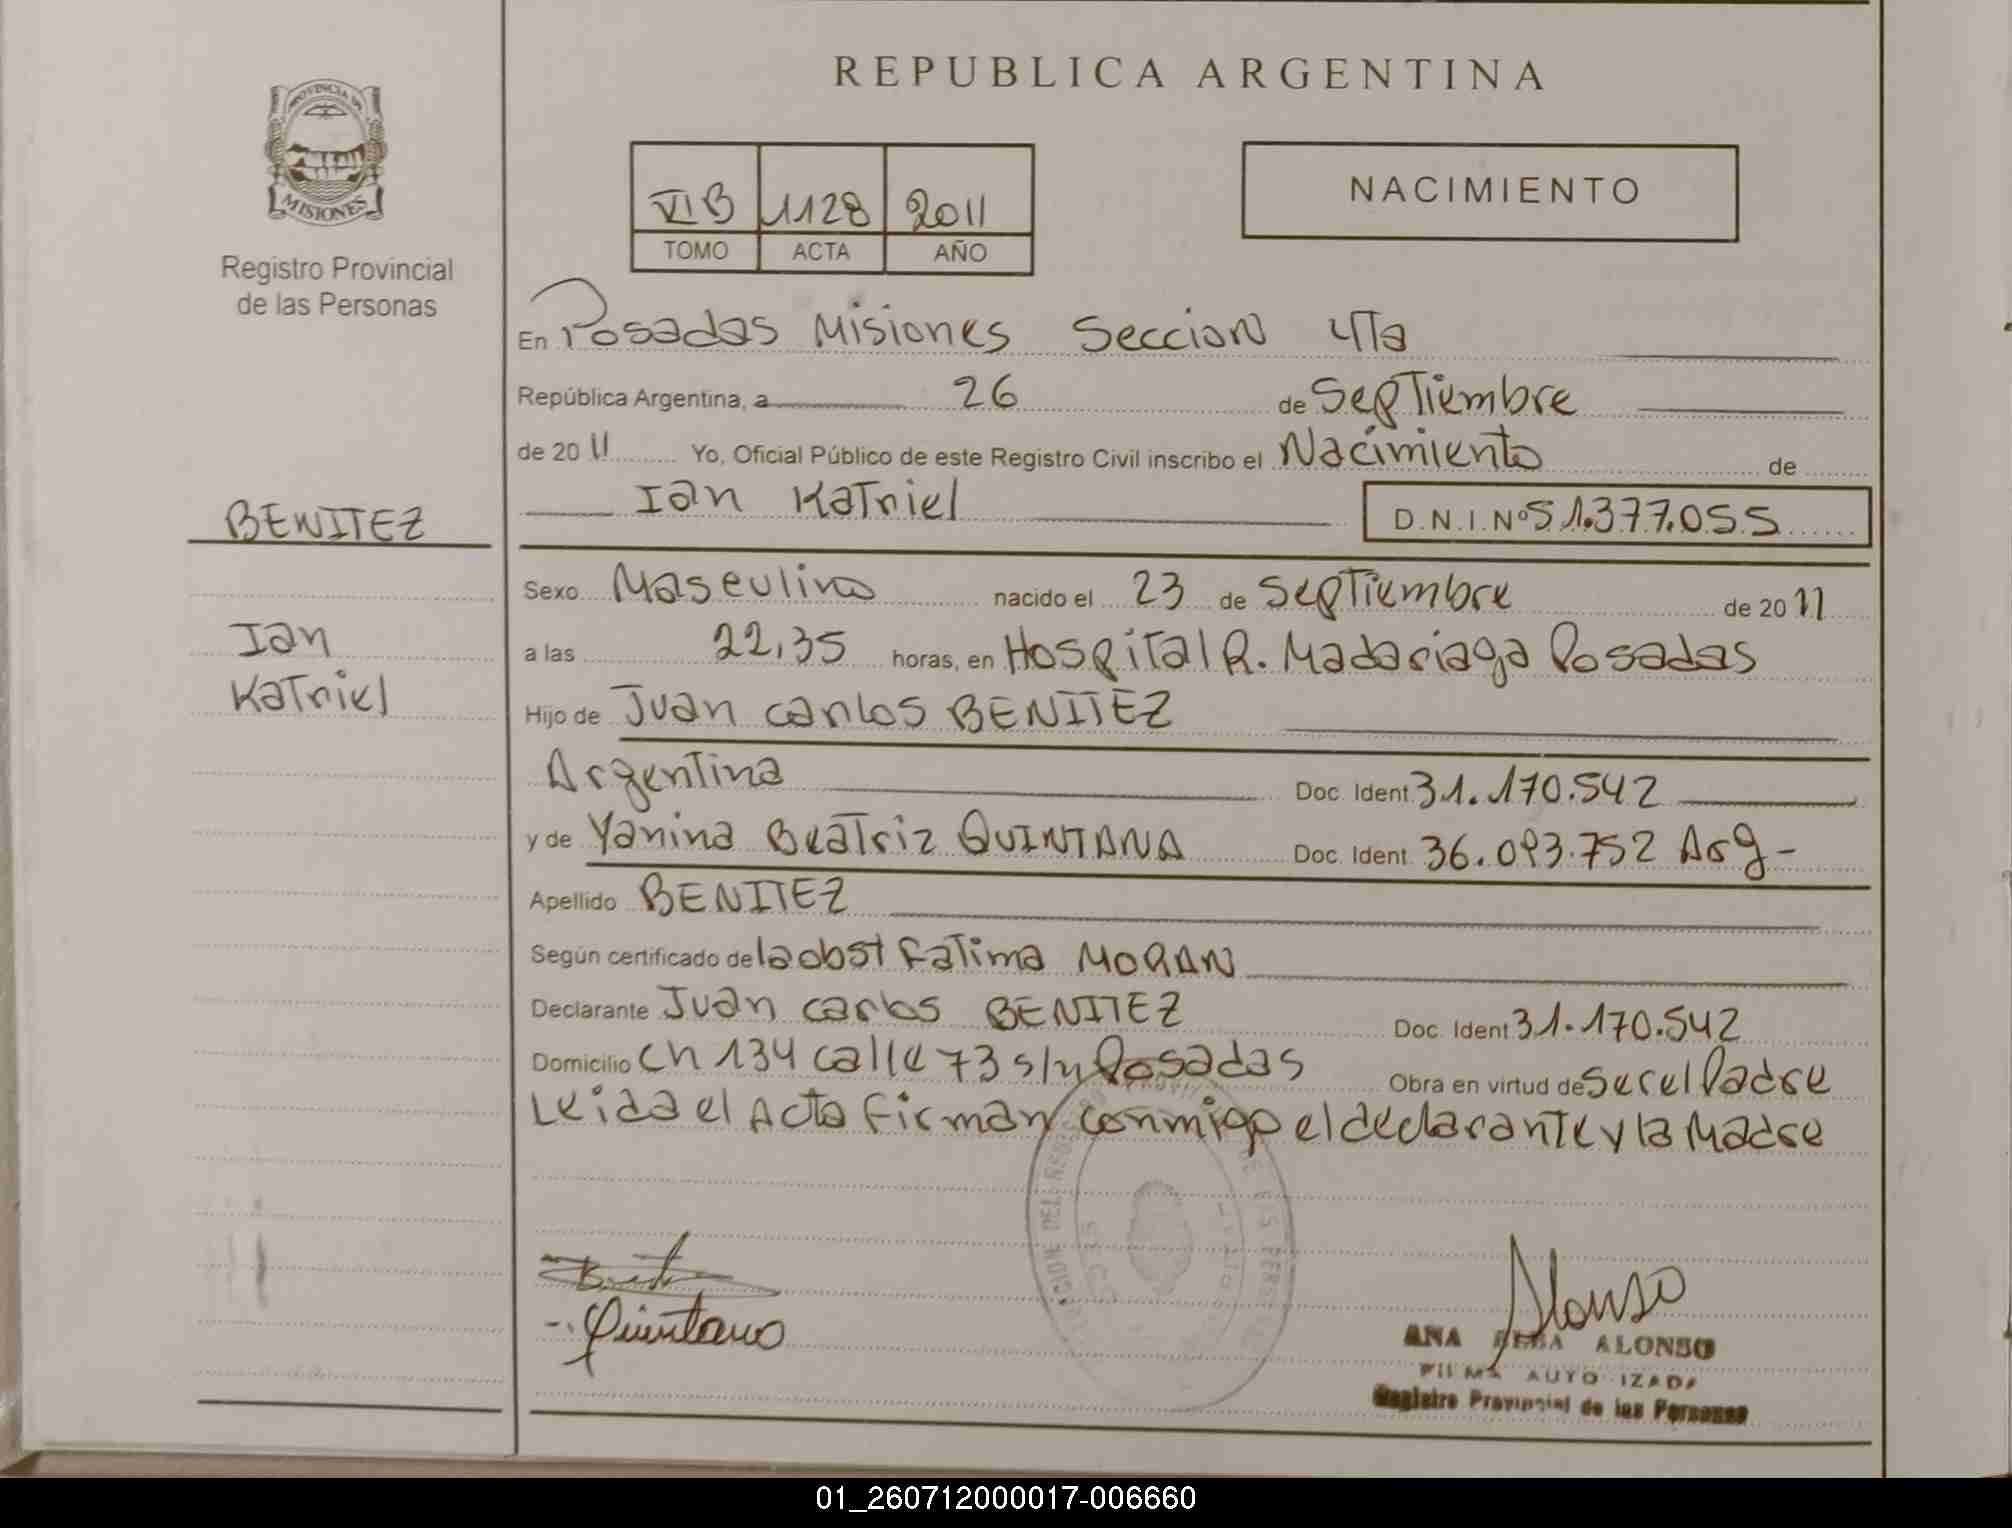 PROVINCIA DE
MISIONES
Registro Provincial
de las Personas
BENITEZ
Ian
Katriel
REPUBLICA ARGENTINA
VIB 1128 2011
TOMO ACTA AÑO
NACIMIENTO
En Posadas Misiones Seccion 4Ta
República Argentina, a 26 de Septiembre
de 2011 Yo, Oficial Público de este Registro Civil inscribo el Nacimiento de
Ian Katriel D.N.I. Nº 51.377.055
Sexo Masculino nacido el 23 de Septiembre de 2011
a las 22,35 horas, en Hospital R. Madariaga Posadas
Hijo de Juan Carlos BENITEZ
Argentina Doc. Ident 31.170.542
y de Yanina Beatriz QUINTANA Doc. Ident. 36.093.752 Arg-
Apellido BENITEZ
Según certificado de la obst Fatima MORAN
Declarante Juan Carlos BENITEZ Doc. Ident 31.170.542
Domicilio Ch 134 calle 73 s/n Posadas Obra en virtud de ser el Padre
Leida el Acta Firman conmigo el declarante y la Madre
Quintana
Alonso
ANA ALONSO
Registro Provincial de las Personas
01_260712000017-006660